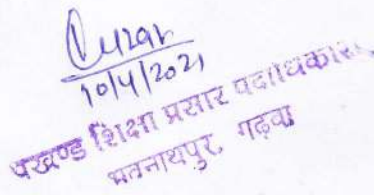 10/4/2021
प्रखण्ड शिक्षा प्रसार पदाधिकारी
भवनाथपुर, गढ़वा